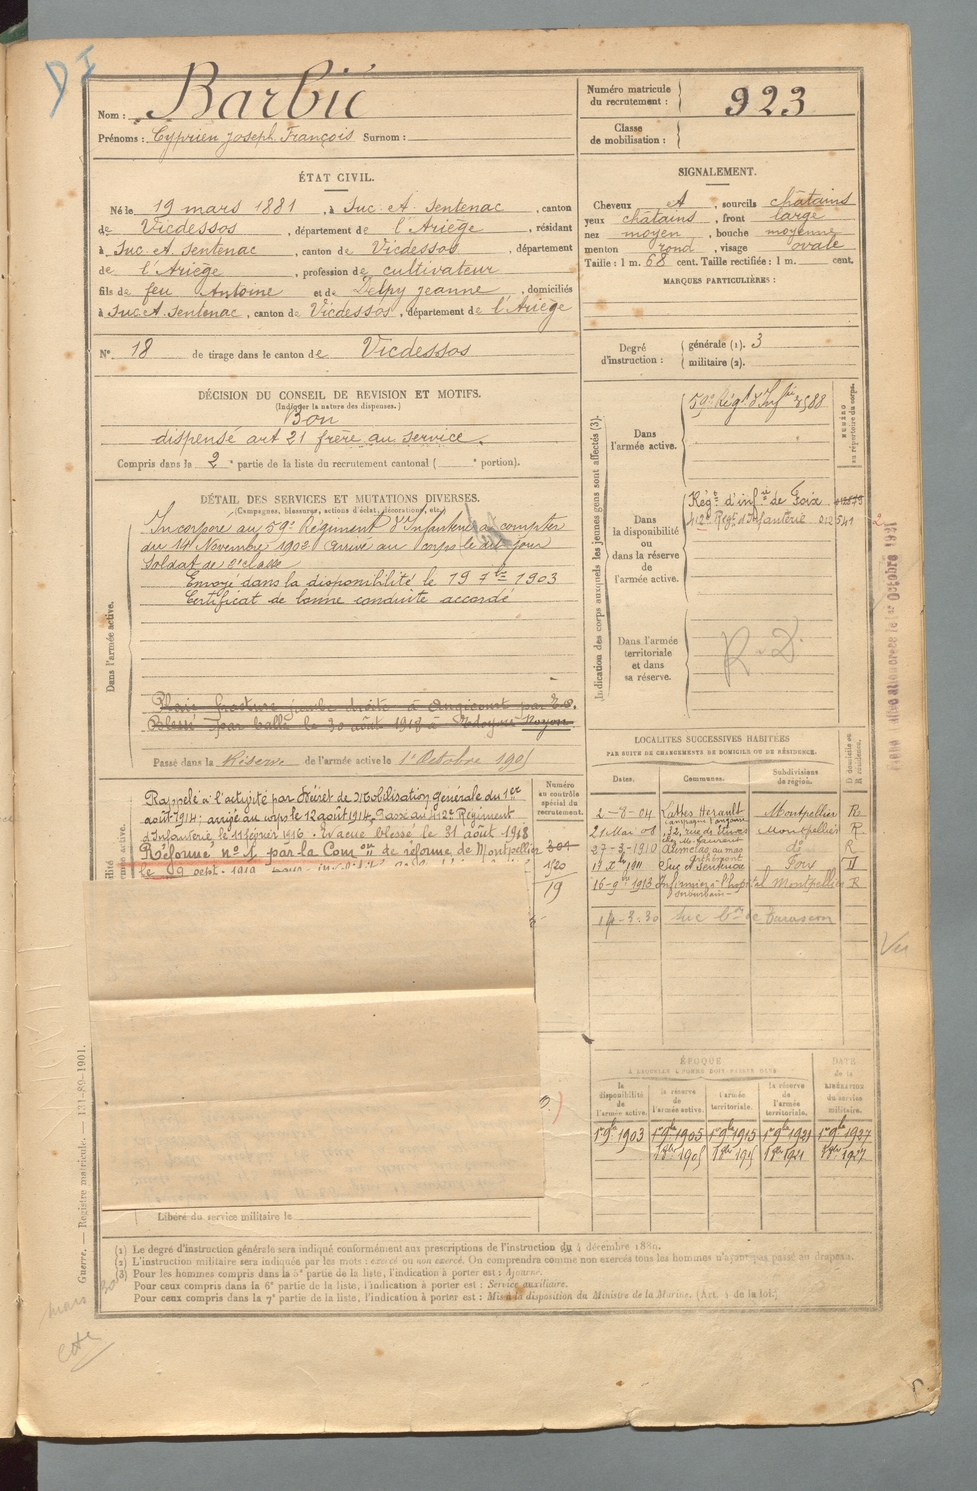 Nom : Barbié
Prénoms : Cyprien Joseph François Surnom :
Numéro matricule du recrutement : 923
Classe de mobilisation :
ÉTAT CIVIL.
Né le 19 mars 1881, à Suc et Sentenac, canton
de Vicdessos, département de l'Ariège, résidant
à Suc et Sentenac, canton de Vicdessos, département
de l'Ariège, profession de cultivateur
fils de feu Antoine et de Delpy Jeanne, domiciliés
à Suc et Sentenac, canton de Vicdessos, département de l'Ariège
N°. 18 de tirage dans le canton de Vicdessos
SIGNALEMENT.
Cheveux et, sourcils châtains
yeux châtains, front large
nez moyen, bouche moyenne
menton rond, visage ovale
Taille : 1 m. 68 cent. Taille rectifiée : 1 m. cent.
MARQUES PARTICULIÈRES :
Degré d'instruction : générale (1). 3
militaire (2).
DÉCISION DU CONSEIL DE REVISION ET MOTIFS.
(Indiquer la nature des dispenses.)
Bon
dispensé art 21 frère au service.
Compris dans la 2e partie de la liste du recrutement cantonal ( e portion).
DÉTAIL DES SERVICES ET MUTATIONS DIVERSES.
(Campagnes, blessures, actions d'éclat, décorations, etc.)
Dans l'armée active.
Incorporé au 59e Régiment d'Infanterie à compter
du 14 Novembre 1902 arrivé au corps le dit jour
Soldat de 2e classe
Envoyé dans la disponibilité le 19 7bre 1903
Certificat de bonne conduite accordé
Plaie fracture jambe droite à Angicourt par
Blessé par balle le 30 août 1918 à Noyon
Passé dans la Réserve de l'armée active le 1er Octobre 1905
Rappelé à l'activité par Décret de Mobilisation générale du 1er
août 1914; arrivé au corps le 12 août 1914. Passé au 412e Régiment
d'Infanterie le 11 février 1916. Evacué blessé le 31 août 1918
Réformé n° 1 par la Comon de réforme de Montpellier
le 19 sept. 1919
Numéro au contrôle spécial du recrutement.
301
1/20
19
Indication des corps auxquels les jeunes gens sont affectés (3).
NUMÉRO au répertoire du corps.
Dans l'armée active.
59e Régt d'Infie 3588
Dans la disponibilité ou dans la réserve de l'armée active.
Régt d'infie de Foix
412e Régt d'Infanterie 012541
Dans l'armée territoriale et dans sa réserve.
R.D.
LOCALITÉS SUCCESSIVES HABITÉES
PAR SUITE DE CHANGEMENTS DE DOMICILE OU DE RÉSIDENCE.
Dates. Communes. Subdivisions de région. D domicile ou R résidence.
2-8-04 Lattes Herault Montpellier R
21 Mai 08 32, rue de Montpellier R
27-3-1910 do R
1911 Suc et Sentenac Foix D
16-9bre 1913 Infirmier à l'hopital Montpellier R
14-3-30 Suc con de Tarascon
Vu
ÉPOQUE
À LAQUELLE L'HOMME DOIT PASSER DANS
la disponibilité de l'armée active. la réserve de l'armée active. l'armée territoriale. la réserve de l'armée territoriale. DATE de la LIBÉRATION du service militaire.
1er 9bre 1903 1er 9bre 1905 1er 9bre 1915 1er 9bre 1921 1er 9bre 1927
1er 8bre 1905 1er 8bre 1915 1er 8bre 1921 1er 8bre 1927
Libéré du service militaire le
(1) Le degré d'instruction générale sera indiqué conformément aux prescriptions de l'instruction du 4 décembre 1889.
(2) L'instruction militaire sera indiquée par les mots : exercé ou non exercé. On comprendra comme non exercés tous les hommes n'ayant pas passé au drapeau.
(3) Pour les hommes compris dans la 5e partie de la liste, l'indication à porter est : Ajourné.
Pour ceux compris dans la 6e partie de la liste, l'indication à porter est : Service auxiliaire.
Pour ceux compris dans la 7e partie de la liste, l'indication à porter est : Mis à la disposition du Ministre de la Marine. (Art. 4 de la loi.)
Guerre. — Registre matricule. — 131-89-1901.